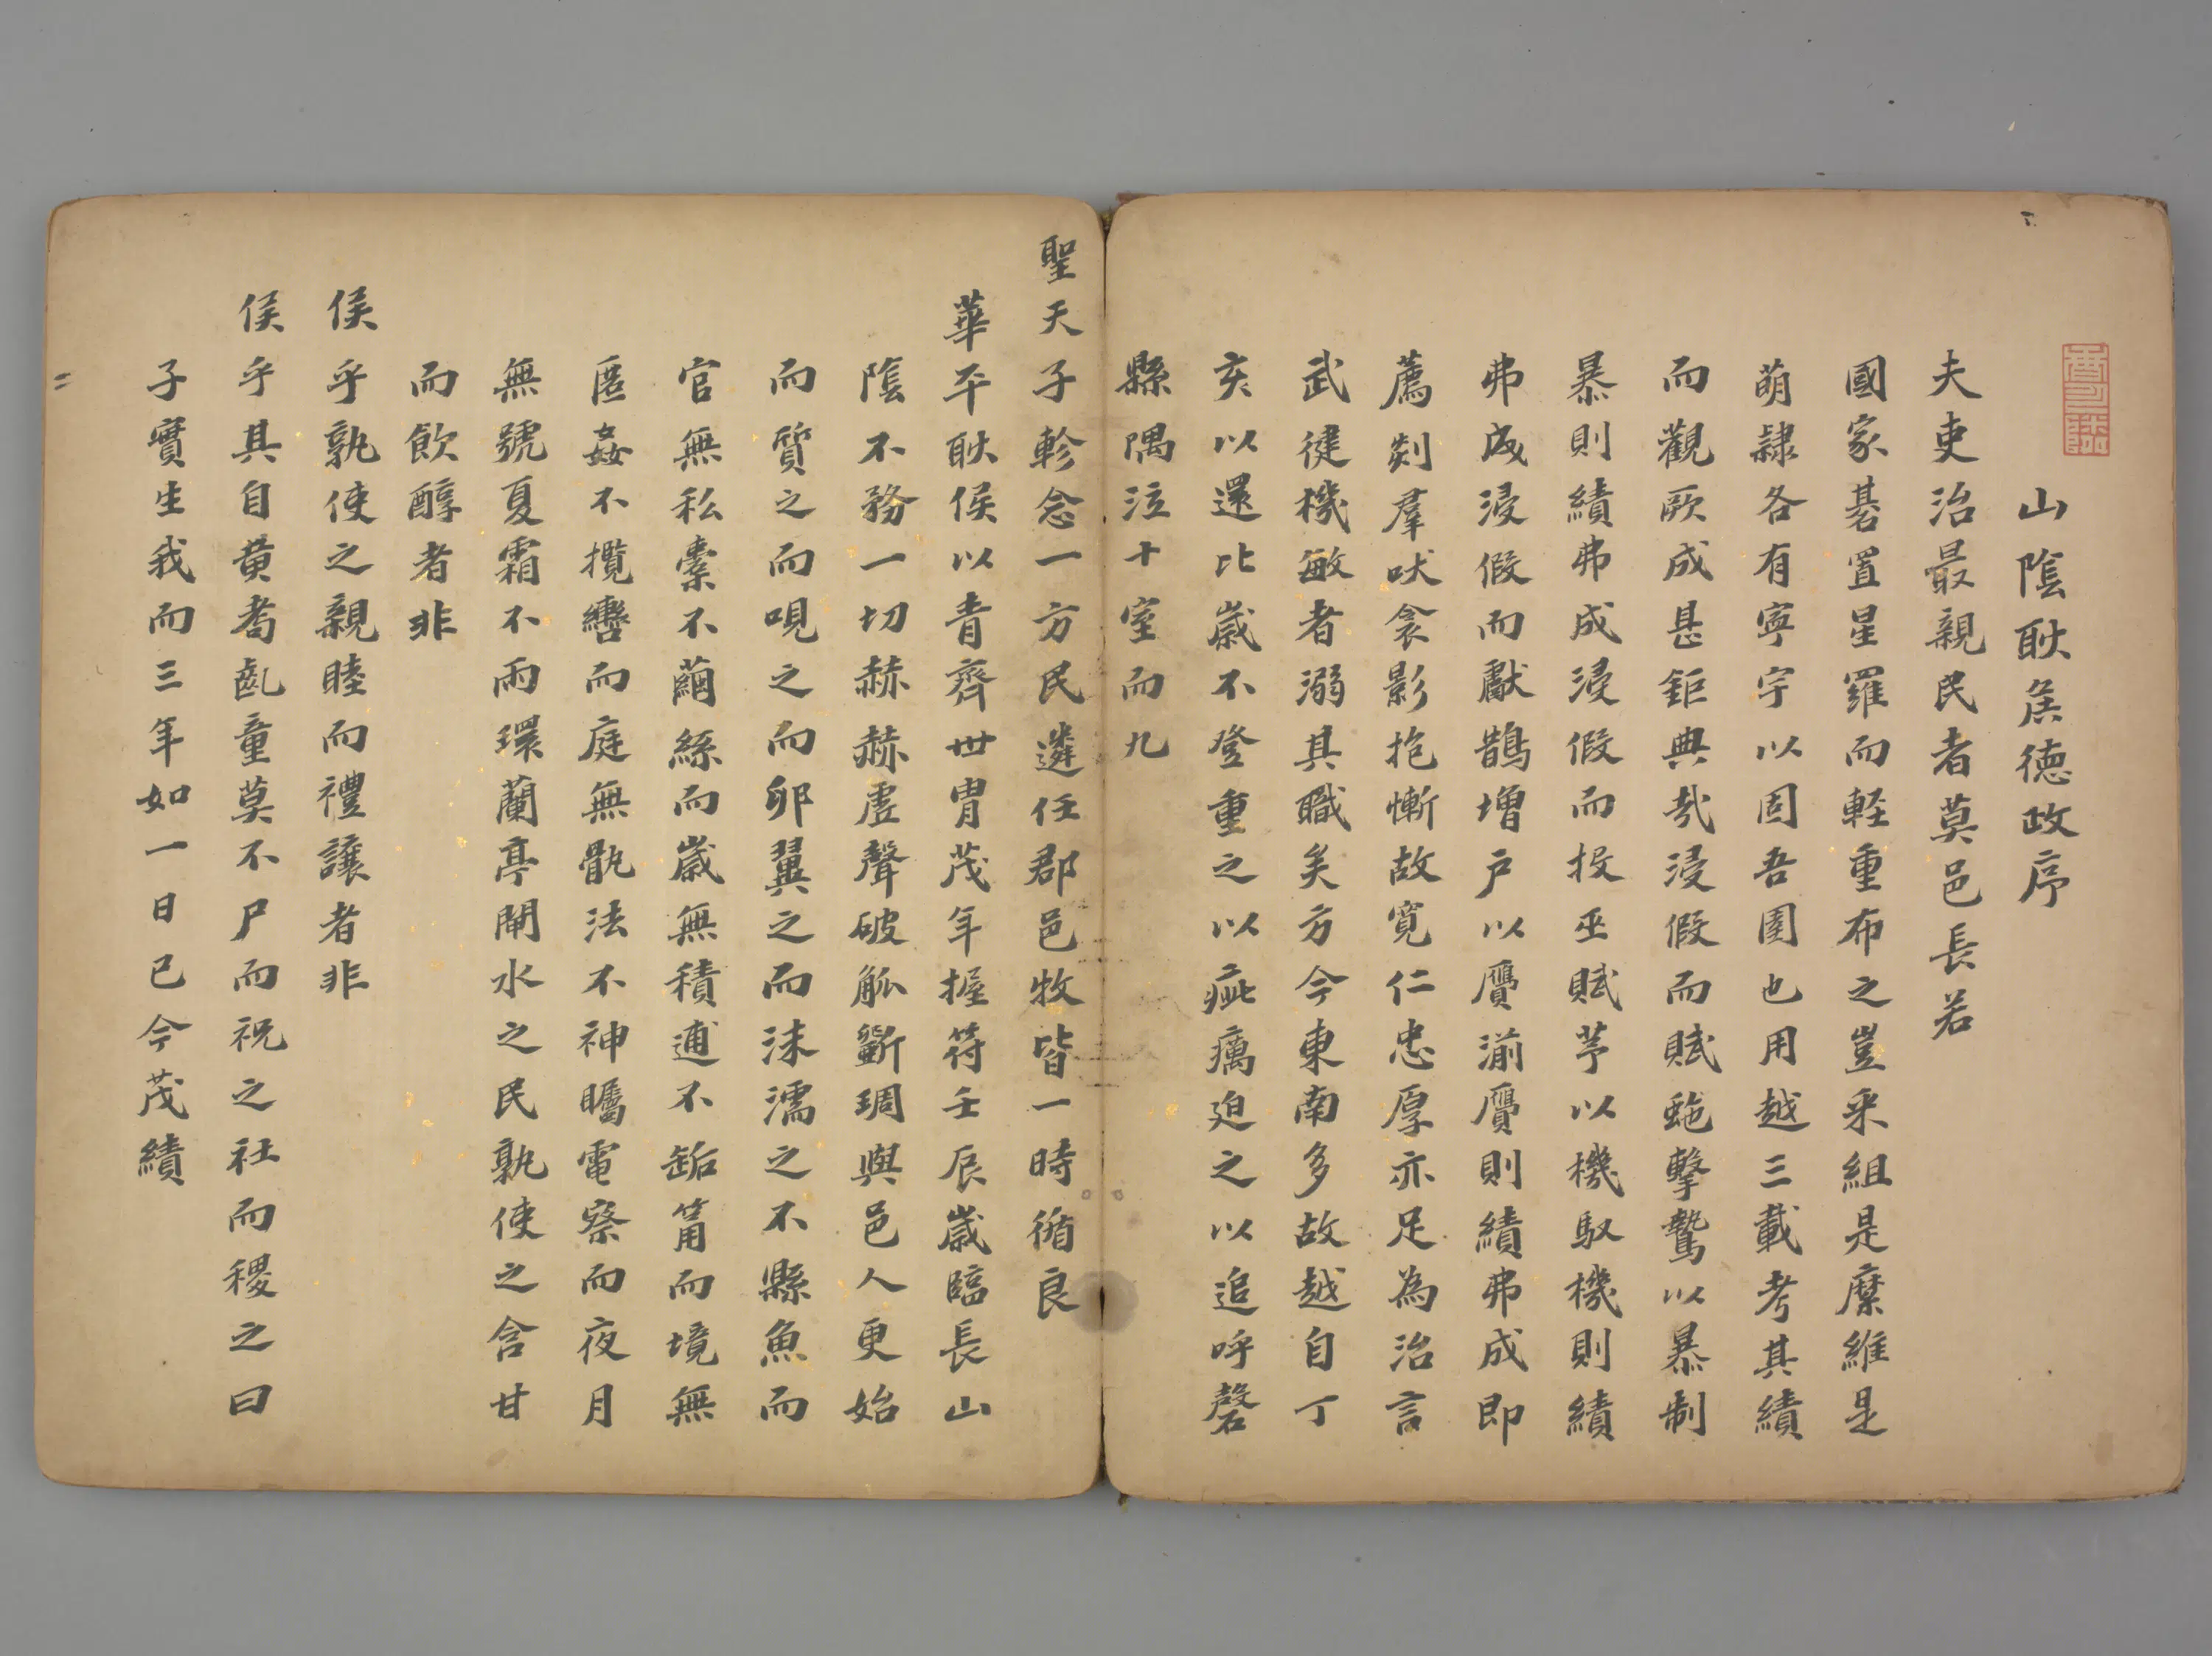 山陰耿侯德政序
夫吏治最親民者莫邑長若
國家碁置星羅而輕重布之豈采組是縻維是
萌隸各有寧宇以固吾圉也用越三載考其績
而觀厥成甚鉅典哉浸假而賦虵擊鷙以暴制
暴則績弗成浸假而投巫賦芧以機馭機則績
弗成浸假而獻鵲增戶以贗湔贗則績弗成即
薦剡羣吠衾影抱慚故寬仁忠厚亦足為治言
武健機敏者溺其職矣方今東南多故越自丁
亥以還比歲不登重之以疵癘廹之以追呼磬
縣隅泣十室而九
聖天子軫念一方民遴任郡邑牧皆一時循良
華平耿侯以青齊世胄茂年握符壬辰歲臨長山
陰不務一切赫赫虛聲破觚斲琱與邑人更始
而質之而呪之而卵翼之而沫濡之不縣魚而
官無私橐不繭絲而歲無積逋不缿筩而境無
匿姦不攬轡而庭無骫法不神矚電察而夜月
無號夏霜不雨環蘭亭閘水之民孰使之含甘
而飲醇者非
侯乎孰使之親睦而禮讓者非
侯乎其自黄耇齔童莫不尸而祝之社而稷之曰
子實生我而三年如一日已今茂績
二